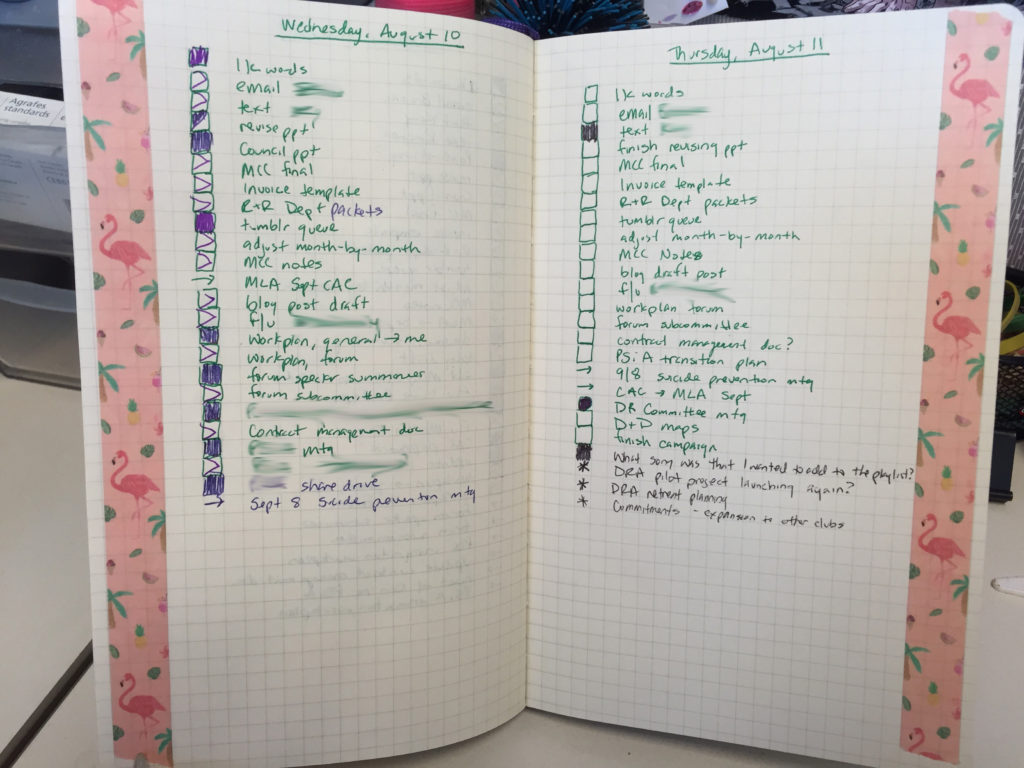 Agrafes
standards
Wednesday, August 10
1k words
email
text
revise ppt
Council ppt
MCC final
Invoice template
R+R Dept packets
tumblr queue
adjust month-by-month
MCC notes
→ MLA Sept CAC
blog post draft
f/u
Workplan, general → me
Workplan, forum
forum speaker summaries
forum subcommittee
Contract management doc
mtg
share drive
→ Sept 8 Suicide prevention mtg
Thursday, August 11
1k words
email
text
finish revising ppt
MCC final
Invoice template
R+R Dept packets
tumblr queue
adjust month-by-month
MCC Notes
blog draft post
f/u
workplan forum
forum subcommittee
contract management doc?
PSiA transition plan
→ 9/8 suicide prevention mtg
→ CAC → MLA Sept
DR Committee mtg
D+D maps
finish campaign
What song was that I wanted to add to the playlist?
* DRA pilot project launching again?
* DRA retreat planning
* Commitments - expansion to other clubs